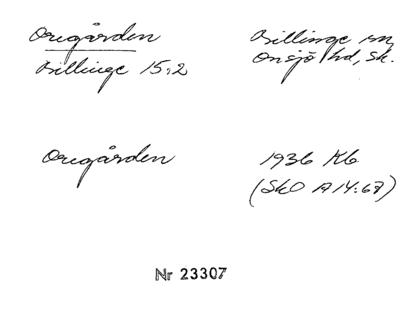 Origården
Billinge 15:2
Billinge sn,
Onsjö hd, Sk.
Origården
1936 Kb
(SkO A14:68)
Nr 23307